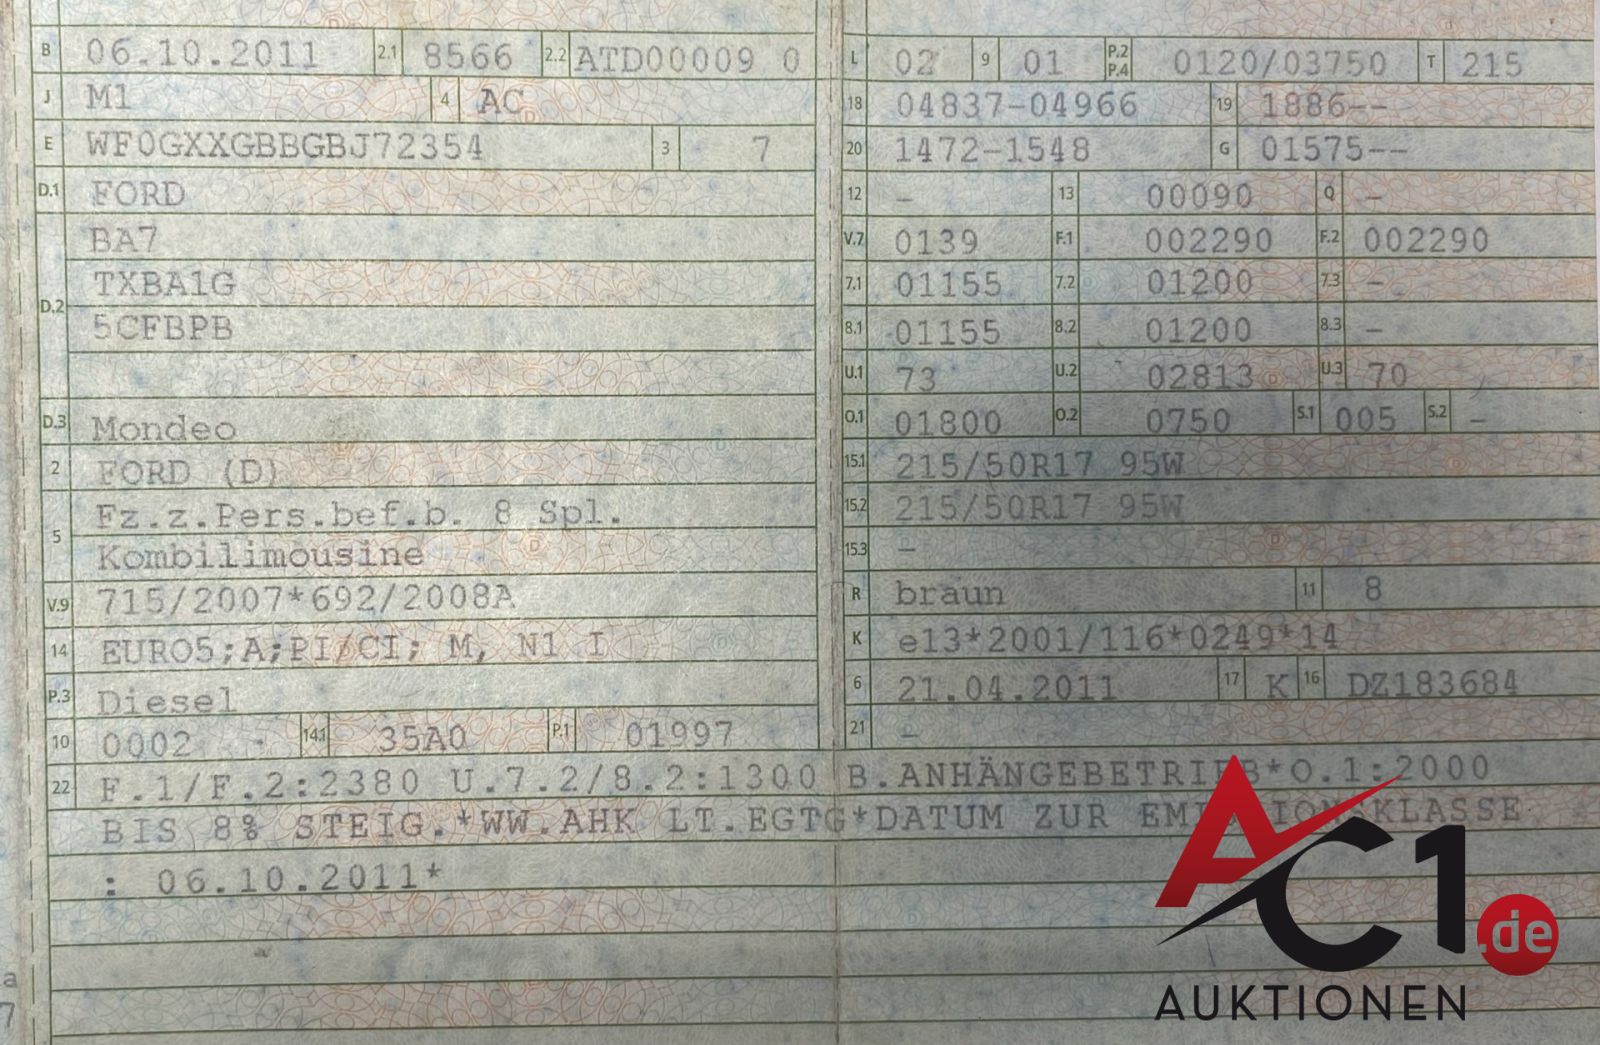 B 06.10.2011 2.1 8566 2.2 ATD00009 0
J M1 4 AC
E WF0GXXGBBGBJ72354 3 7
D.1 FORD
BA7
D.2 TXBA1G
5CFBPB
D.3 Mondeo
2 FORD (D)
5 Fz.z.Pers.bef.b. 8 Spl.
Kombilimousine
V.9 715/2007*692/2008A
14 EURO5;A;PI/CI; M, N1 I
P.3 Diesel
10 0002 - 14.1 35A0 P.1 01997
L 02 9 01 P.2 P.4 0120/03750 T 215
18 04837-04966 19 1886--
20 1472-1548 G 01575--
12 - 13 00090 Q -
V.7 0139 F.1 002290 F.2 002290
7.1 01155 7.2 01200 7.3 -
8.1 01155 8.2 01200 8.3 -
U.1 73 U.2 02813 U.3 70
O.1 01800 O.2 0750 S.1 005 S.2 -
15.1 215/50R17 95W
15.2 215/50R17 95W
15.3 -
R braun 11 8
K e13*2001/116*0249*14
6 21.04.2011 17 K 16 DZ183684
21 -
22 F.1/F.2:2380 U.7.2/8.2:1300 B.ANHÄNGEBETRIEB*O.1:2000
BIS 8% STEIG.*WW.AHK LT.EGTG*DATUM ZUR EMISSIONSKLASSE
: 06.10.2011*
a
7
AC1.de
AUKTIONEN